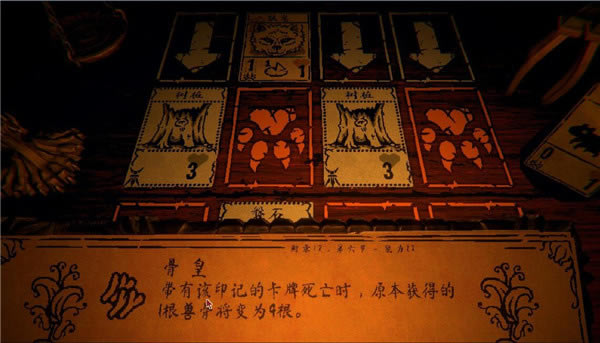 1 1
树桩 树桩
3 3
0
骨皇
带有该印记的卡牌死亡时，原本获得的
1根兽骨将变为4根。